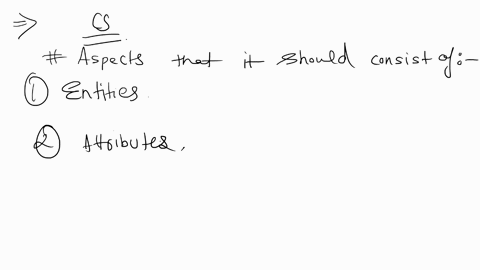 ⇒ CS
# Aspects that it should consist of:-
① Entities.
② Attributes,